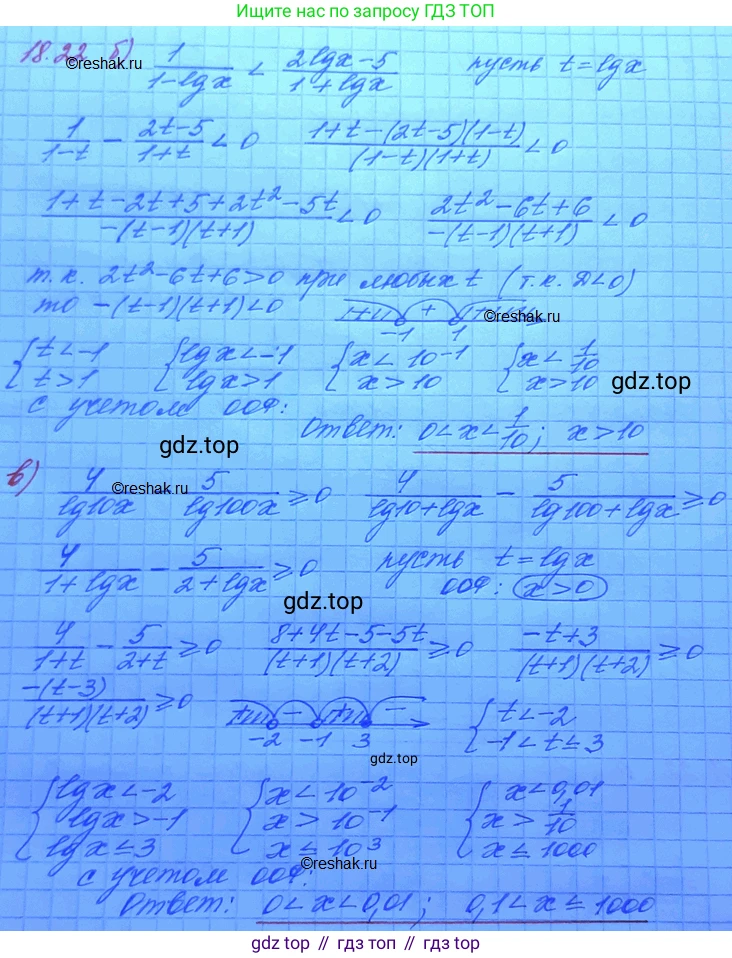 Ищите нас по запросу ГДЗ ТОП
18.22 б) 1/(1-lgx) < (2lgx-5)/(1+lgx) пусть t=lgx
©reshak.ru
1/(1-t) - (2t-5)/(1+t) < 0 (1+t-(2t-5)(1-t))/((1-t)(1+t)) < 0
(1+t-2t+5+2t²-5t)/(-(t-1)(t+1)) < 0 (2t²-6t+6)/(-(t-1)(t+1)) < 0
т.к. 2t²-6t+6>0 при любых t (т.к. D<0)
то -(t-1)(t+1)<0 + -1 1
©reshak.ru
{t<-1 t>1 {lgx<-1 lgx>1 {x<10⁻¹ x>10 {x<1/10 x>10
gdz.top
с учетом ООФ:
Ответ: 0<x<1/10; x>10
gdz.top
в) 4/lg10x - 5/lg100x ≥ 0 4/(lg10+lgx) - 5/(lg100+lgx) ≥ 0
©reshak.ru
4/(1+lgx) - 5/(2+lgx) ≥ 0 пусть t=lgx
ООФ: x>0
gdz.top
4/(1+t) - 5/(2+t) ≥ 0 (8+4t-5-5t)/((t+1)(t+2)) ≥ 0 (-t+3)/((t+1)(t+2)) ≥ 0
-(t-3)/((t+1)(t+2)) ≥ 0 + - + - -2 -1 3 {t<-2 -1<t≤3
gdz.top
{lgx<-2 lgx>-1 lgx≤3 {x<10⁻² x>10⁻¹ x≤10³ {x<0,01 x>1/10 x≤1000
©reshak.ru
с учетом ООФ:
Ответ: 0<x<0,01; 0,1<x≤1000
gdz.top // гдз топ // gdz.top